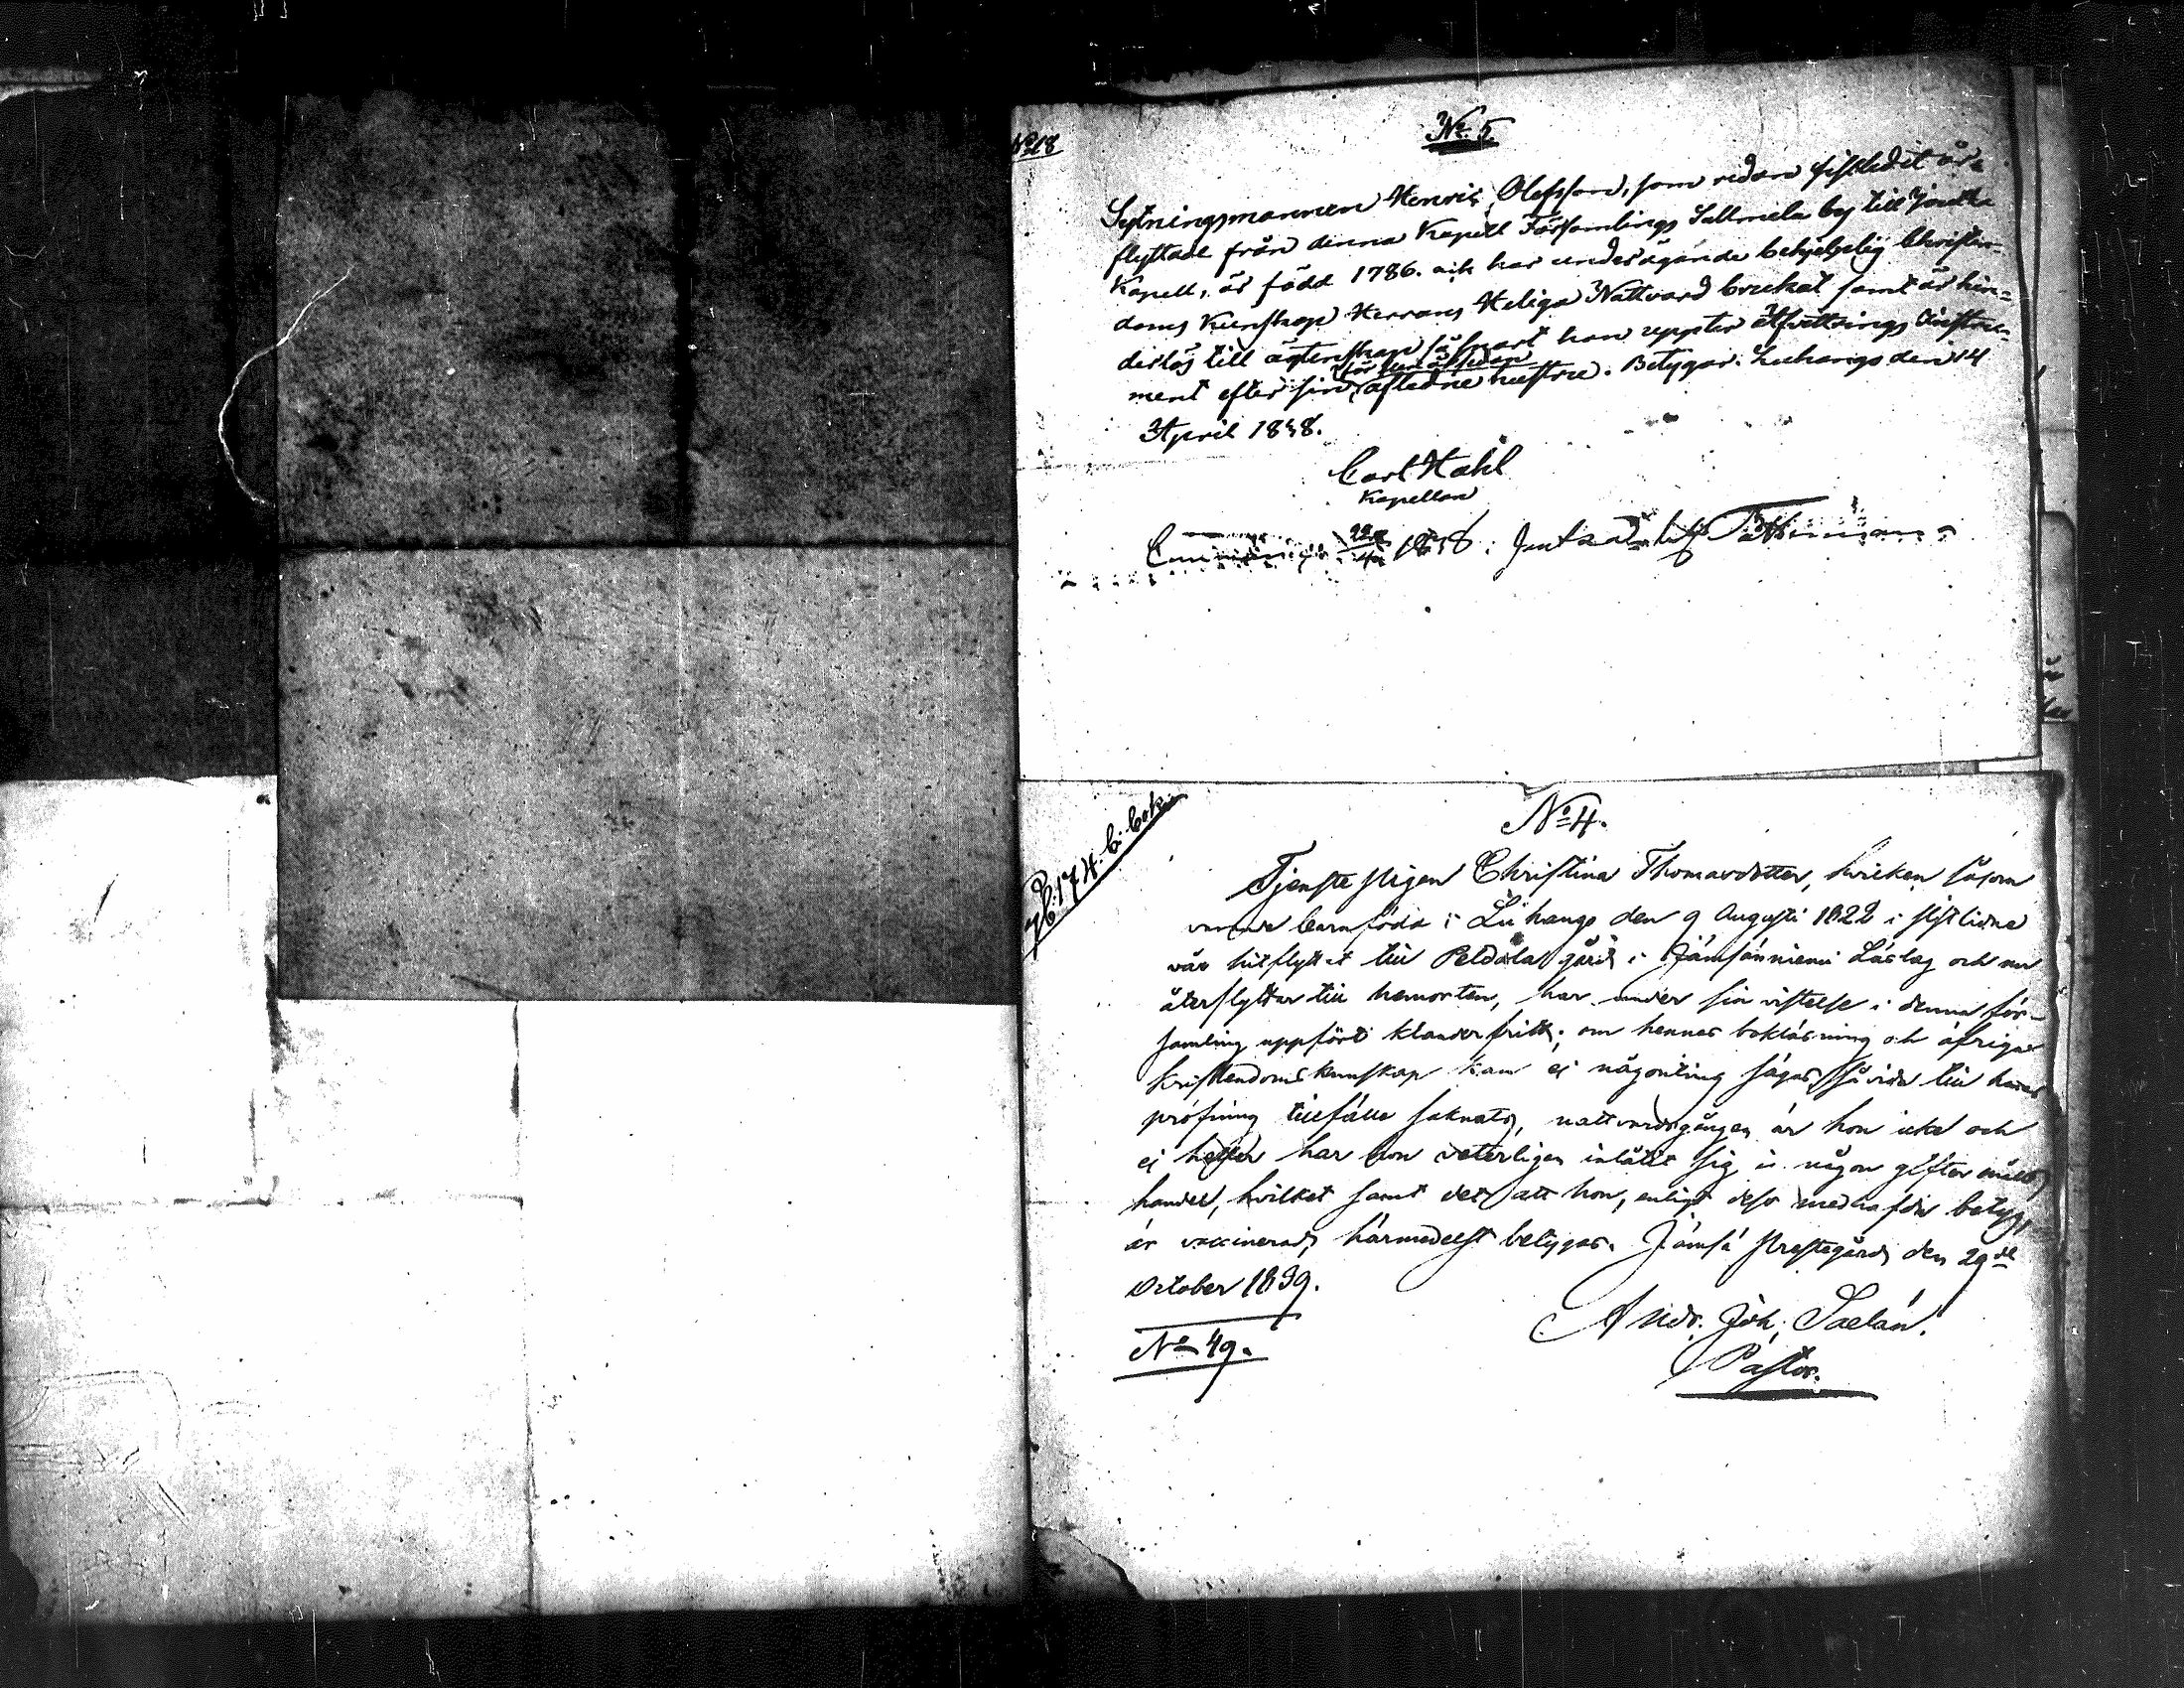 No 18
No. 5.
Sytningsmannen Henric Olofsson, som redan sistledit år
flyttade från denna Kapell Församlings Tallmela by till Joutsa
Kapell, är född 1786. och har undervågande behjelpelig Christen=
doms kunskap Herrans Heliga Nattvard brukat samt är hin=
derlös till äktenskap så snart han uppter afvittrings Instru=
ment efter sin aflednne hustru. Betygar. Luhango den 14
April 1838.
Carl Hahl
Kapellan
1838.
pb. 174. b. bok.
No 4.
Tjenste pigan Christina Thomasdotter, hvilken såsom
varande barnfödd i Luhango den 9 Augusti 1822 i sistlidne
vår hitflyttat till Peldola gård i Jämsänniemi Läslag och nu
återflyttar till hemorten, har under sin vistelse i denna för-
samling uppfört klanderfritt; om hennes bokläsning och öfriga
kristendomskunskap kan ej någonting sägas, såvida till hennes
pröfning tillfälle saknats, nattvardsgången är hon icke och
ej heller har hon veterligen inlåtit sig i någon giftermåls
handel, hvilket samt det att hon, enligt dess medhafda betyg,
är vaccinerad, härmedelst betygas. Jämsä Prestegård den 29de
October 1839.
No 49.
Andr. Joh. Saelan.
Pastor.